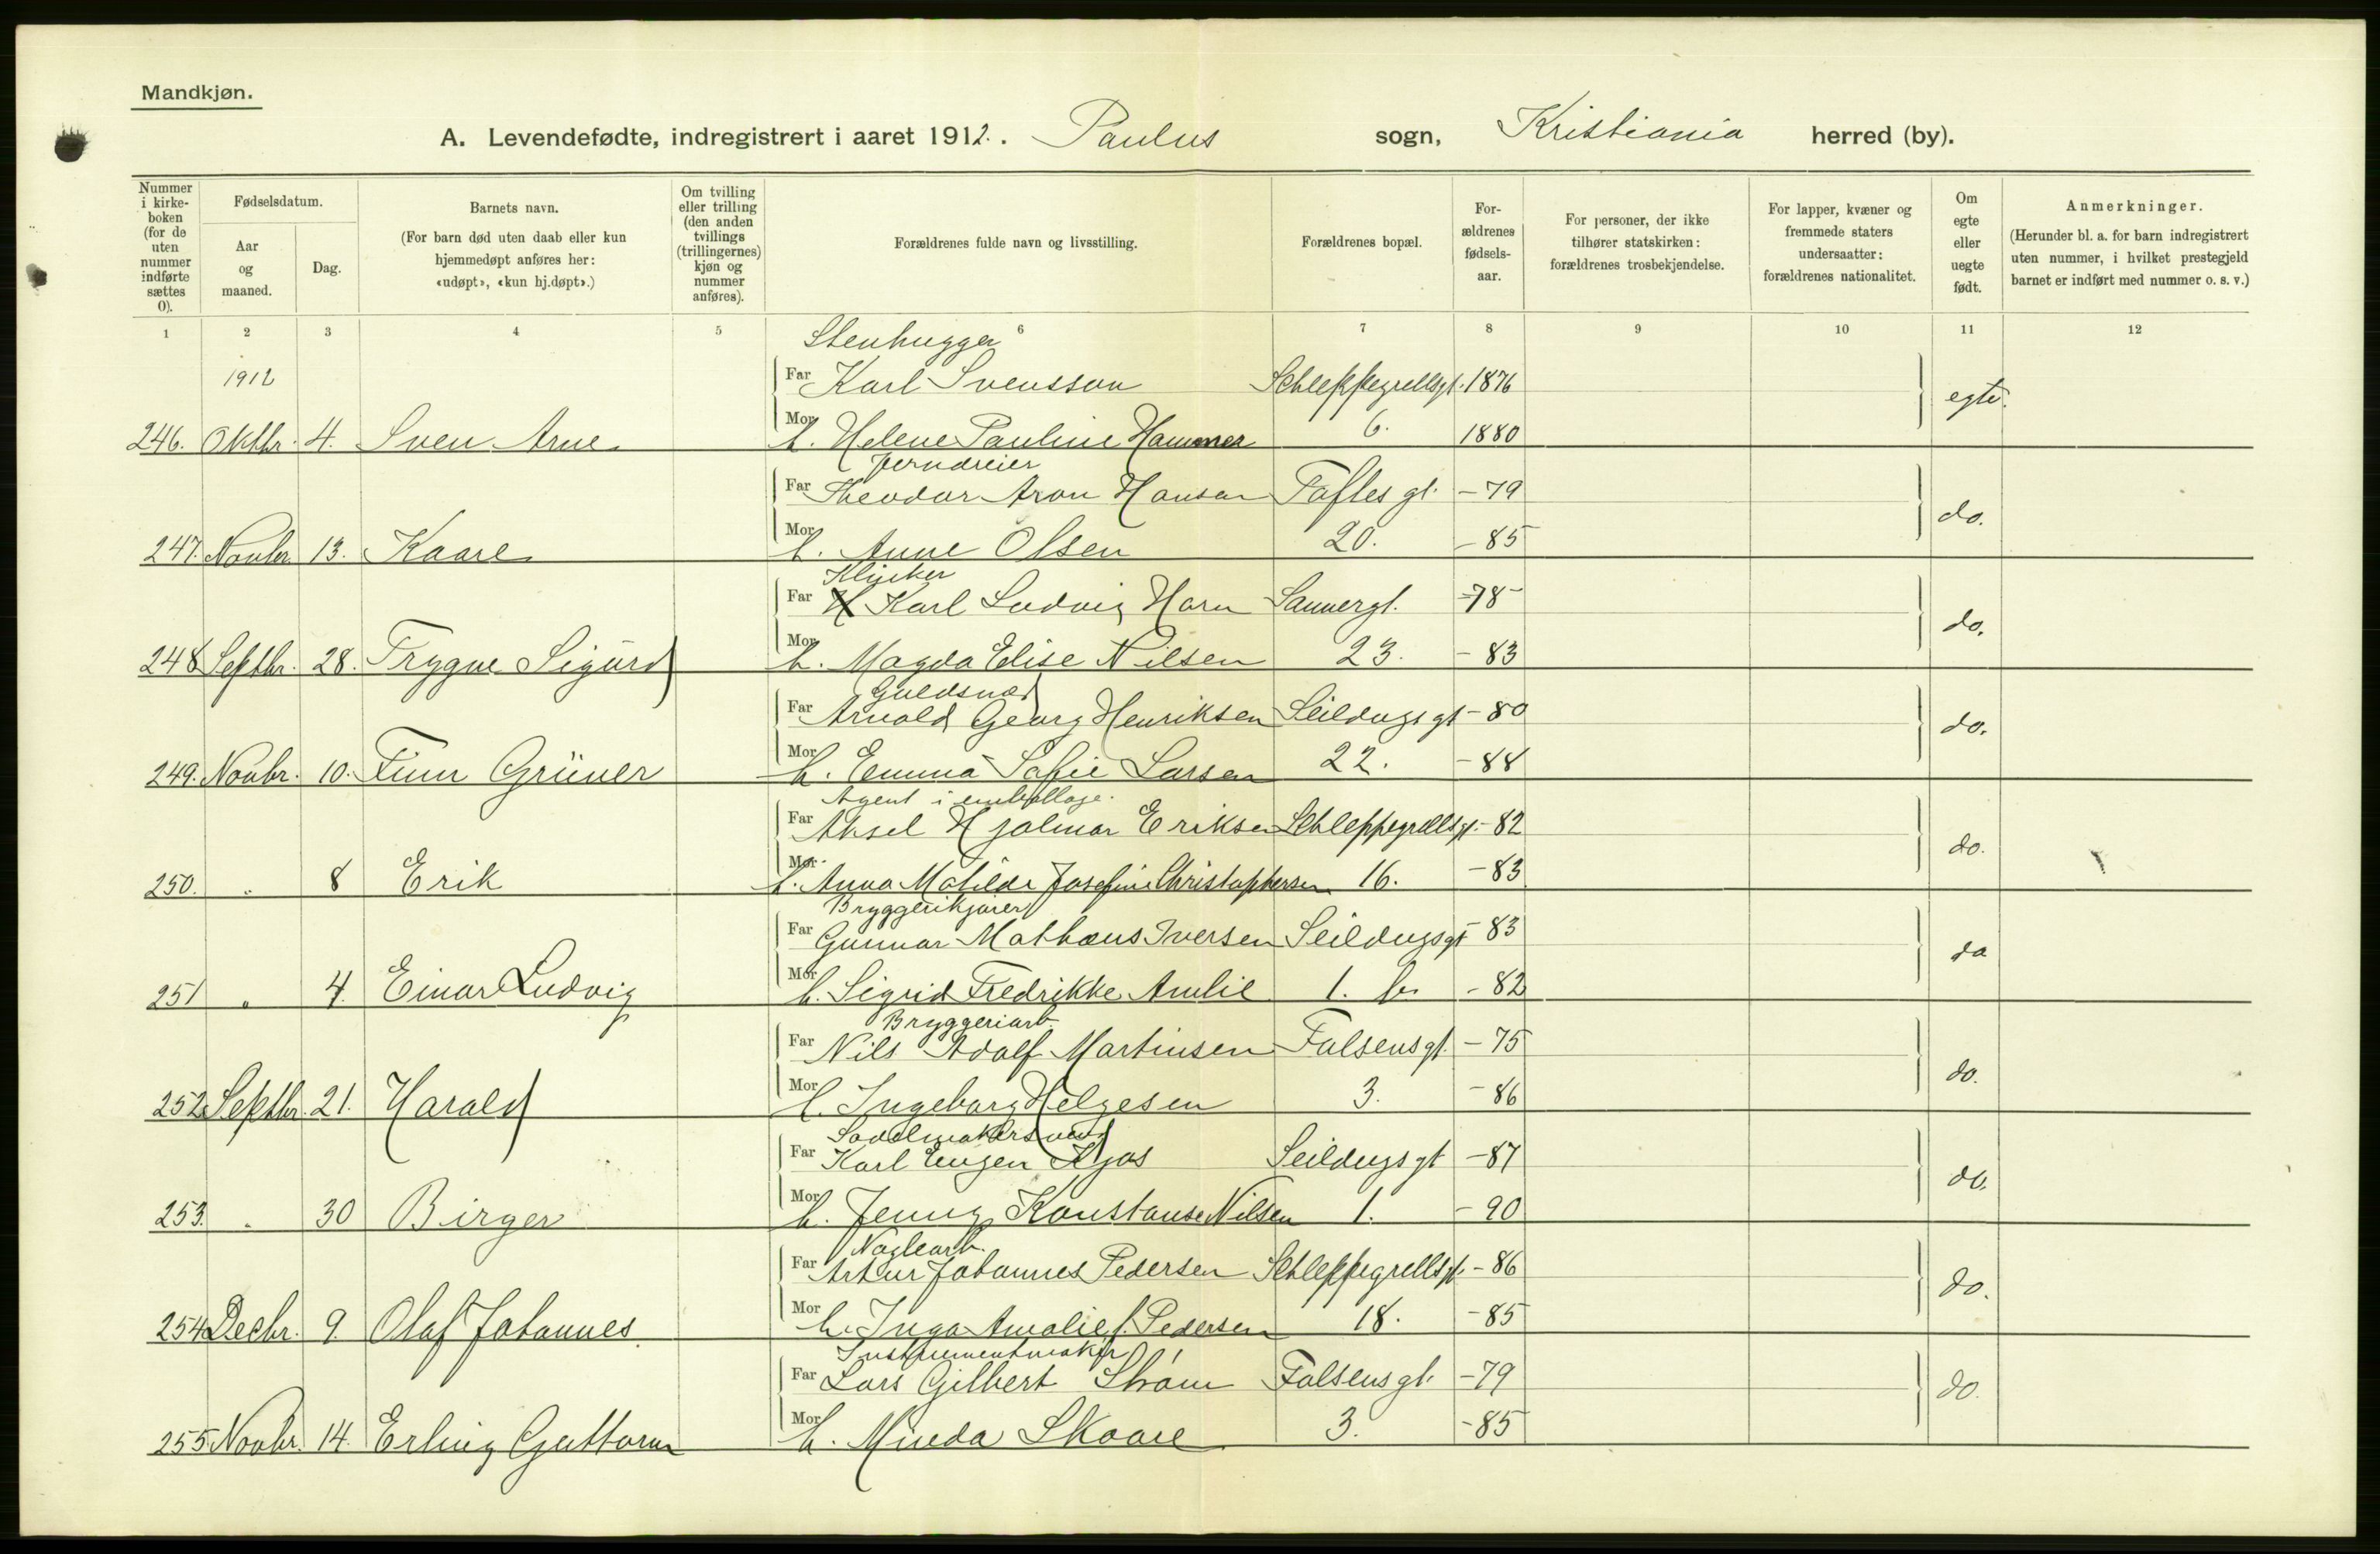 Mandkjøn.
A. Levendefødte, indregistrert i aaret 1912. Paulus sogn, Kristiania herred (by).
Nummer i kirke-boken (for de uten nummer indførte sættes 0).
Fødselsdatum.
Aar og maaned.
Dag.
Barnets navn.
(For barn død uten daab eller kun hjemmedøpt anføres her: «udøpt», «kun hj.døpt».)
Om tvilling eller trilling (den anden tvillings (trillingernes) kjøn og nummer anføres).
Forældrenes fulde navn og livsstilling.
Forældrenes bopæl.
For-ældrenes fødsels-aar.
For personer, der ikke tilhører statskirken: forældrenes trosbekjendelse.
For lapper, kvæner og fremmede staters undersaatter: forældrenes nationalitet.
Om egte eller uegte født.
Anmerkninger.
(Herunder bl. a. for barn indregistrert uten nummer, i hvilket prestegjeld barnet er indført med nummer o. s. v.)
1 2 3 4 5 6 7 8 9 10 11 12
Stenhugger
1912 Far Karl Svensson Schleppegrellsgt. 1876 egte.
246. Oktbr. 4. Sven Arne Mor h. Helene Pauline Hammer 6. 1880
Jerndreier
Far Theodor Aron Hansen Toftes gt. -79 do.
247. Novbr. 13. Kaare Mor h. Anne Olsen 20. -85
Klinker
Far Karl Ludvig Horn Sannergt. -78 do.
248 Septbr. 28. Trygve Sigurd Mor h. Magda Elise Nilsen 23. -83
Guldsmed
Far Arnold Georg Henriksen Seildugsgt -80 do.
249. Novbr. 10. Finn Grüner Mor h. Emma Sofie Larsen 22. -88
Agent i emballage.
Far Aksel Hjalmar Eriksen Schleppegrellsgt. -82 do.
250. " 8 Erik Mor h. Anna Matilde Josefine Christophersen 16. -83
Bryggerikjører
Far Gunnar Mathæus Iversen Seildugsgt -83 do
251 " 4. Einar Ludvig Mor h. Sigrid Fredrikke Amlie 1. b. -82
Bryggeriarb.
Far Nils Adolf Martinsen Falsensgt. -75 do.
252 Septbr. 21. Harald Mor h. Ingeborg Helgesen 3. -86
Sadelmakersvend
Far Karl Eugen Kjøs Seildugsgt -87 do.
253. " 30 Birger Mor h. Jenny Konstanse Nilsen 1. -90
Naglearb.
Far Artur Johannes Pedersen Schleppegrellsgt. -86 do.
254 Decbr. 9. Olaf Johannes Mor h. Inga Amalie f. Pedersen 18. -85
Instrumentmaker
Far Lars Gilbert Strøm Falsensgt. -79 do.
255 Novbr. 14. Erling Guttorm Mor h. Minda Skaare 3. -85